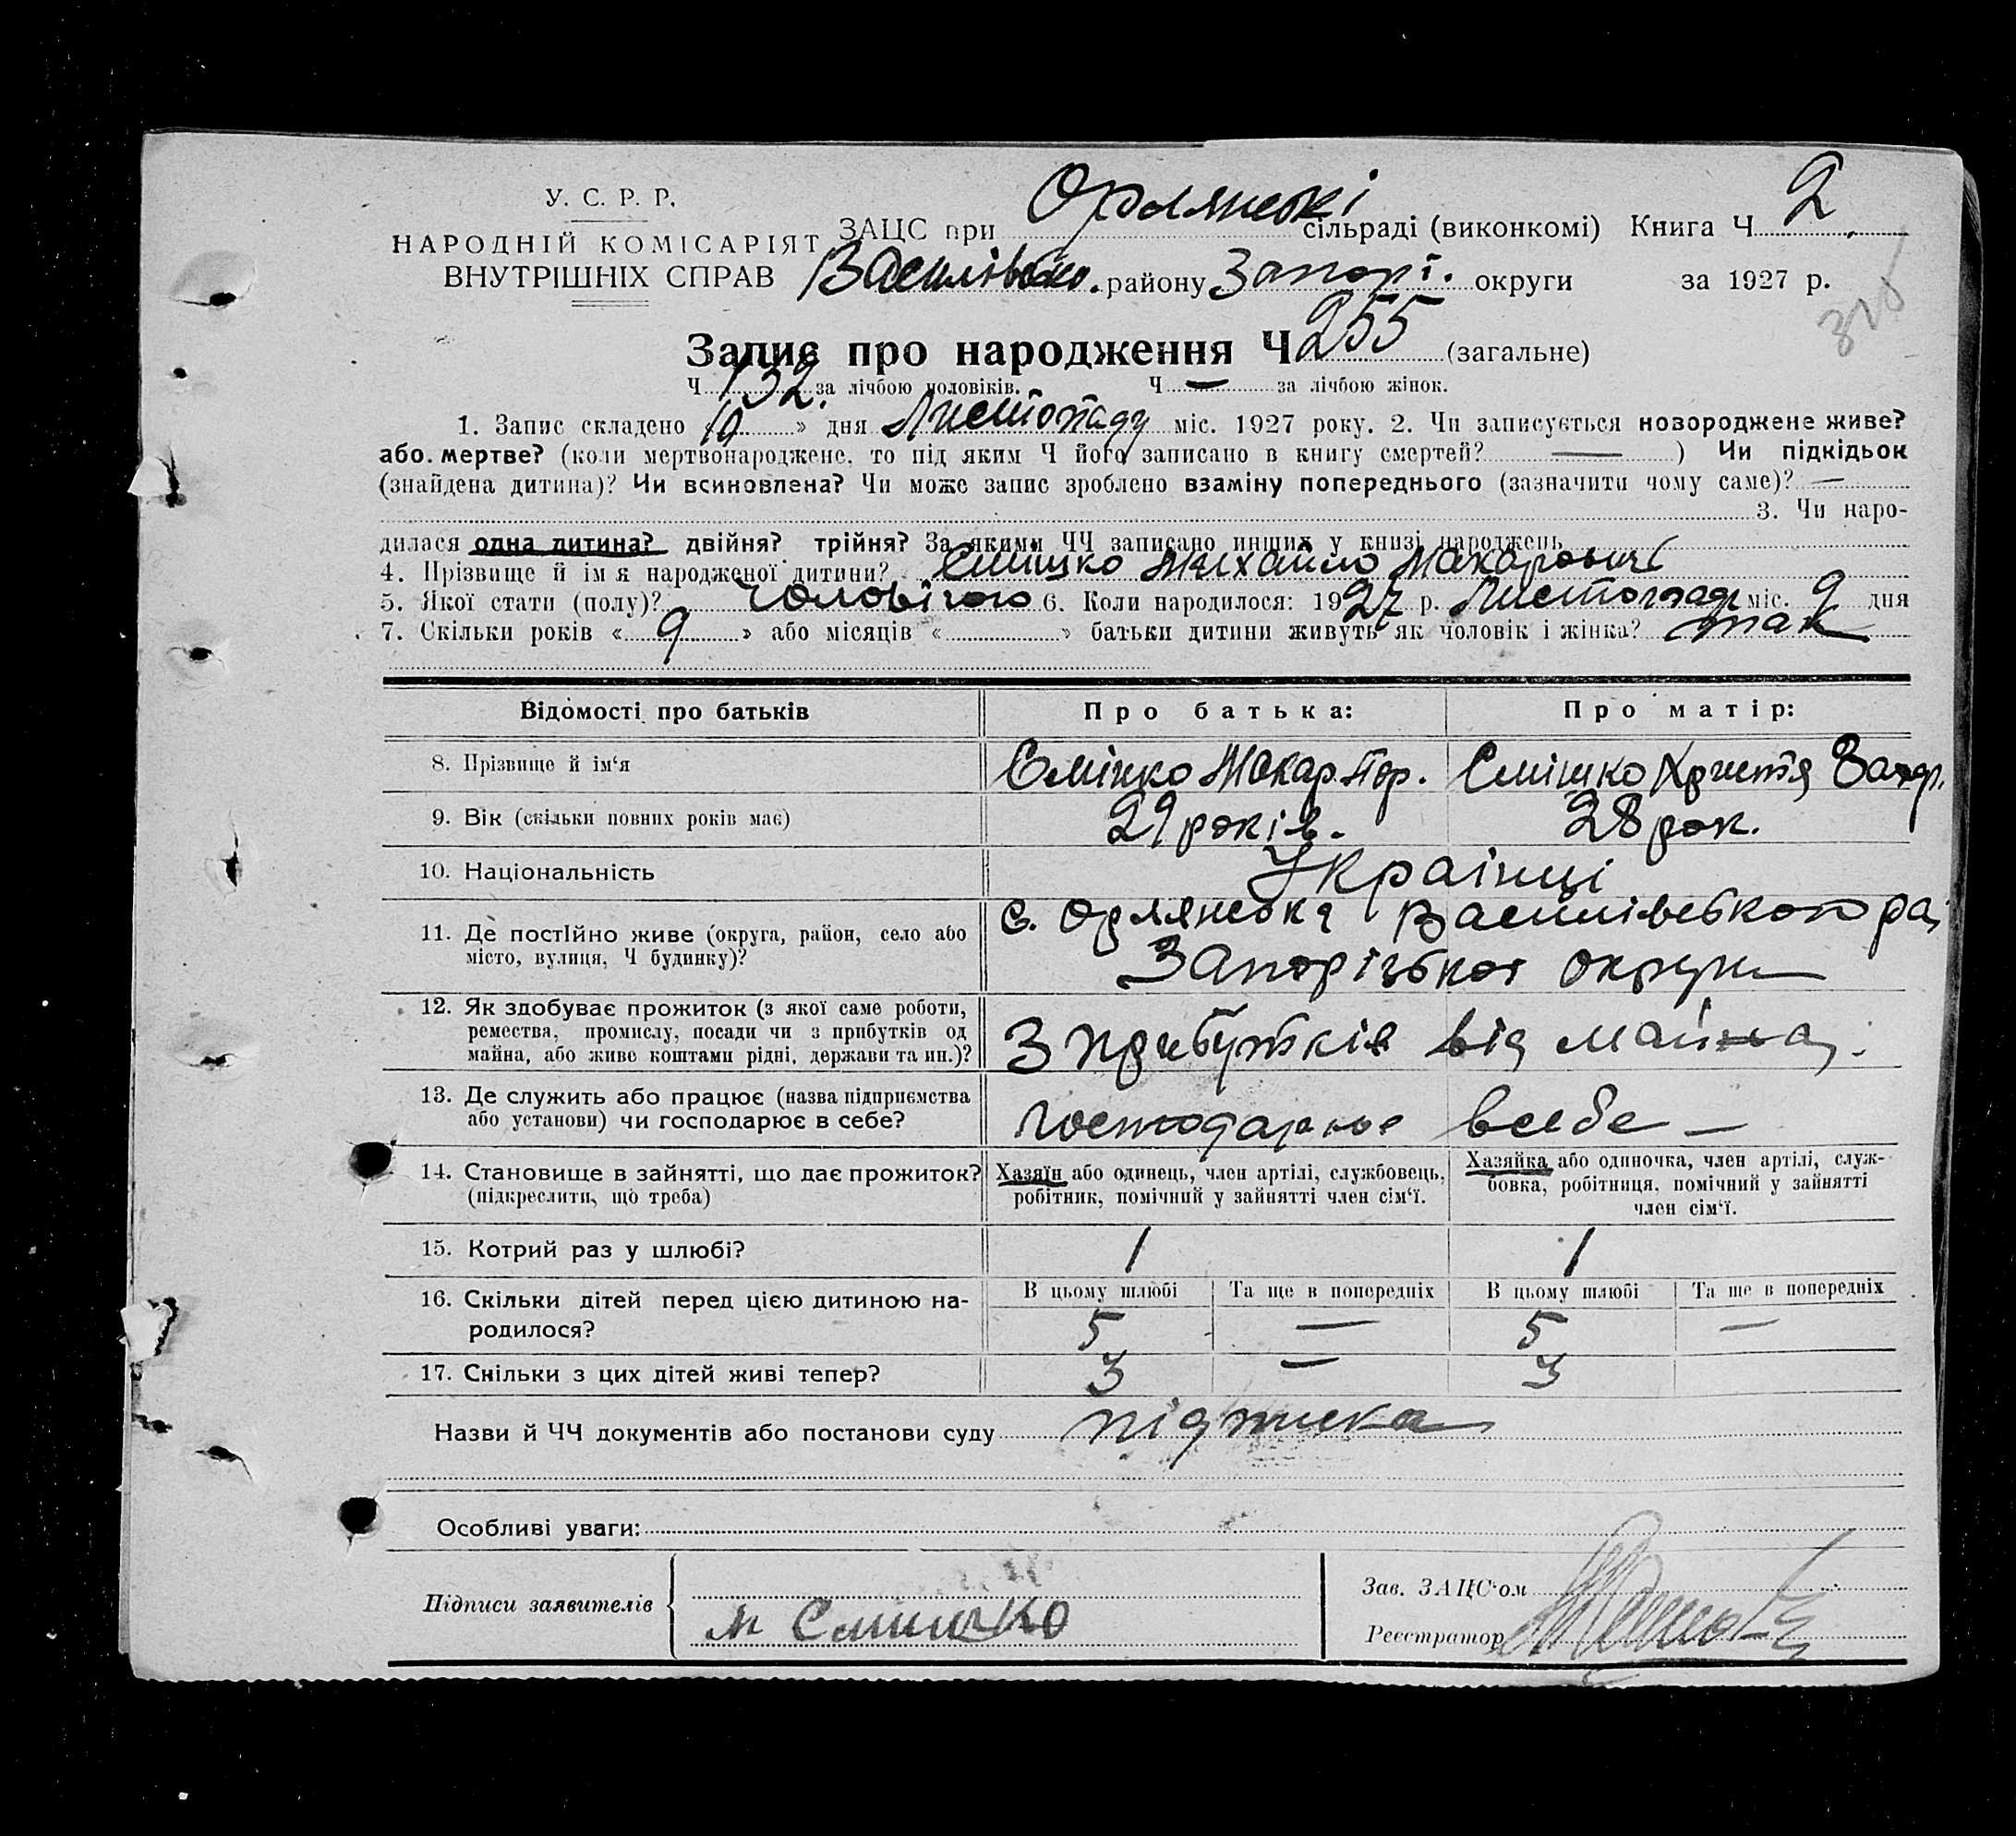 У. С. Р. Р.
НАРОДНІЙ КОМІСАРІЯТ
ВНУТРІШНІХ СПРАВ
ЗАЦС при Орлянські сільраді (виконкомі) Книга Ч 2
Василівськ. району Запорі. округи за 1927 р.
Запис про народження Ч 255 (загальне)
Ч 132 за лічбою чоловіків. Ч — за лічбою жінок.
1. Запис складено «10» дня Листопаду міс. 1927 року. 2. Чи записується новороджене живе?
або мертве? (коли мертвонароджене, то під яким Ч його записано в книгу смертей? — ) Чи підкідьок
(знайдена дитина)? Чи всиновлена? Чи може запис зроблено взаміну попереднього (зазначити чому саме)? —
3. Чи наро-
дилася одна дитина? двійня? трійня? За якими ЧЧ записано инших у книзі народжень
4. Прізвище й імя народженої дитини? Смішко Михайло Макарович
5. Якої стати (полу)? Чоловічою 6. Коли народилося: 1927 р. Листопаду міс. 9 дня
7. Скільки років «9» або місяців « » батьки дитини живуть як чоловік і жінка? так
Відомості про батьків Про батька: Про матір:
8. Прізвище й ім‘я Смішко Макар. Смішко Христя
9. Вік (скільки повних років має) 29 років. 28 рок.
10. Національність Українці
11. Де постійно живе (округа, район, село або
місто, вулиця, Ч будинку)?
с. Орлянська Василівського ра
Запорізької округи
12. Як здобуває прожиток (з якої саме роботи,
ремества, промислу, посади чи з прибутків од
майна, або живе коштами рідні, держави та ин.)?
З прибутків від майна
13. Де служить або працює (назва підприємства
або установи) чи господарює в себе?
господарює всебе —
14. Становище в зайнятті, що дає прожиток?
(підкреслити, що треба)
Хазяїн або одинець, член артілі, службовець,
робітник, помічний у зайнятті член сім‘ї.
Хазяйка або одиночка, член артілі, служ-
бовка, робітниця, помічний у зайнятті
член сім‘ї.
15. Котрий раз у шлюбі? 1 1
16. Скільки дітей перед цією дитиною на-
родилося?
В цьому шлюбі Та ще в попередніх В цьому шлюбі Та ще в попередніх
5 — 5 —
17. Скільки з цих дітей живі тепер? 3 — 3
Назви й ЧЧ документів або постанови суду підписка
Особливі уваги:
Підписи заявителів
м Смишко
Зав. ЗАЦС‘ом
Реєстратор